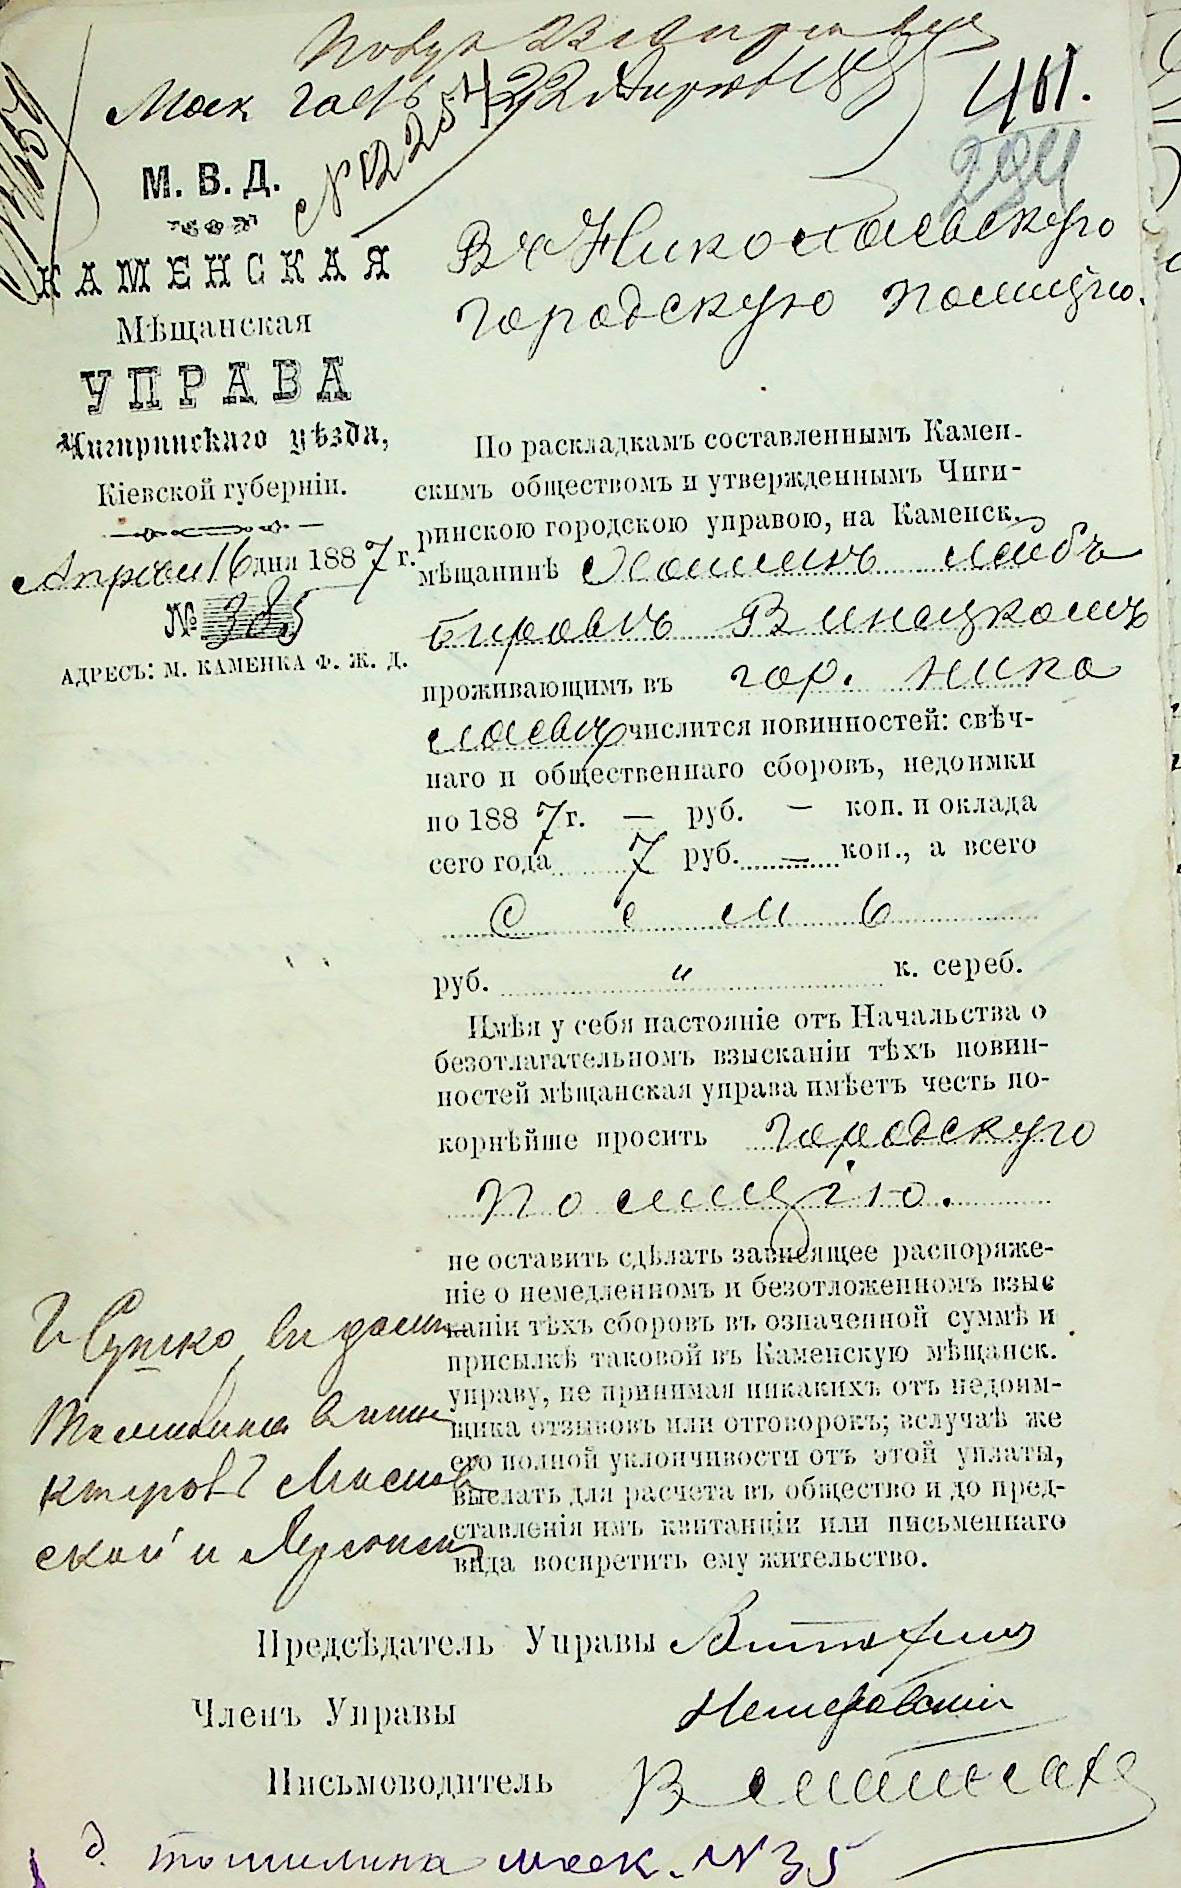 Моск
22 Апреля 188
№ 12254
411.
294
М. В. Д.
КАМЕНСКАЯ
Мѣщанская
УПРАВА
Чигиринскаго уѣзда,
Кіевской губерніи.
Апреля 16 дня 1887 г.
№ 385
АДРЕСЪ: М. КАМЕНКА Ф. Ж. Д.
Въ Николаевскую
городскую полицію.
По раскладкамъ составленнымъ Камен-
скимъ обществомъ и утвержденнымъ Чиги-
ринскою городскою управою, на Каменск.
мѣщанинѣ Лейбѣ
Берковѣ Винецкомъ
проживающимъ въ гор. Нико
лаевѣ числится повинностей: свѣч-
наго и общественнаго сборовъ, недоимки
по 1887 г. — руб. — коп. и оклада
сего года 7 руб. — коп., а всего
Семь
руб. " к. сереб.
Имѣя у себя настояніе отъ Начальства о
безотлагательномъ взысканіи тѣхъ повин-
ностей мѣщанская управа имѣетъ честь по-
корнѣйше просить городскую
полицію.
не оставить сдѣлать зависящее распоряже-
ніе о немедленномъ и безотложенномъ взыс
каніи тѣхъ сборовъ въ означенной суммѣ и
присылкѣ таковой въ Каменскую мѣщанск.
управу, не принимая никакихъ отъ недоим-
щика отзывовъ или отговорокъ; вслучаѣ же
его полной уклончивости отъ этой уплаты,
выслать для расчета въ общество и до пред-
ставленія имъ квитанціи или письменнаго
вида воспретить ему жительство.
ской и
Предсѣдатель Управы
Членъ Управы
Письмоводитель
д. Томилина моск. № 35